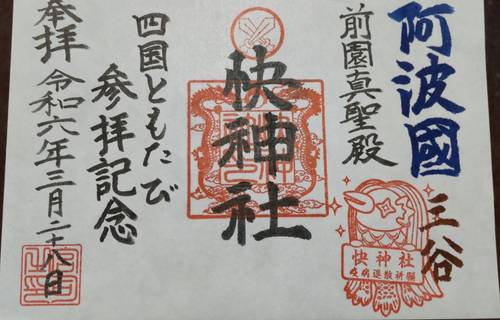 阿波國
三谷
前園真聖殿
快神社
疫病退散祈願
快神社
四国ともたび
参拝記念
奉拝
令和六年三月二十八日